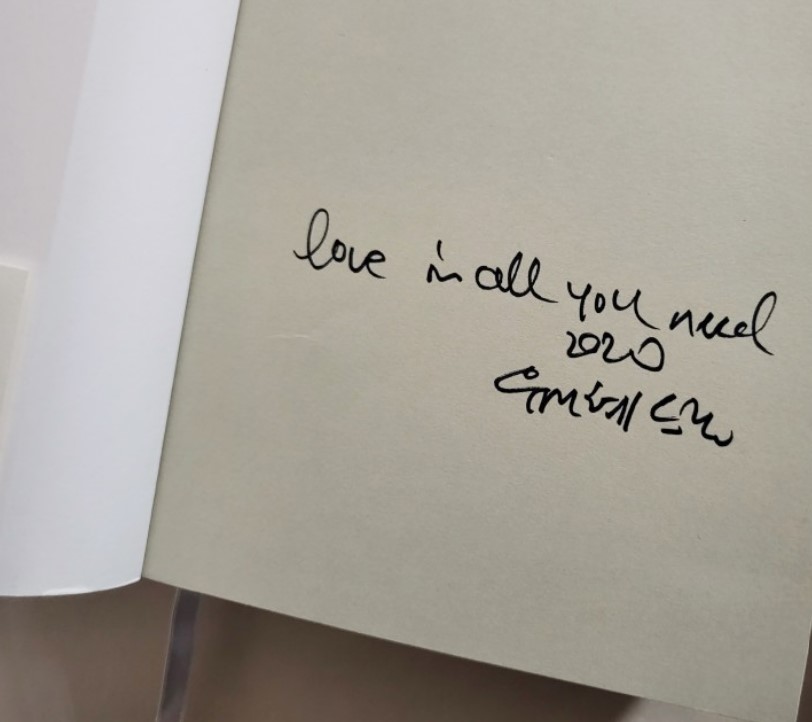 love is all you need
2020